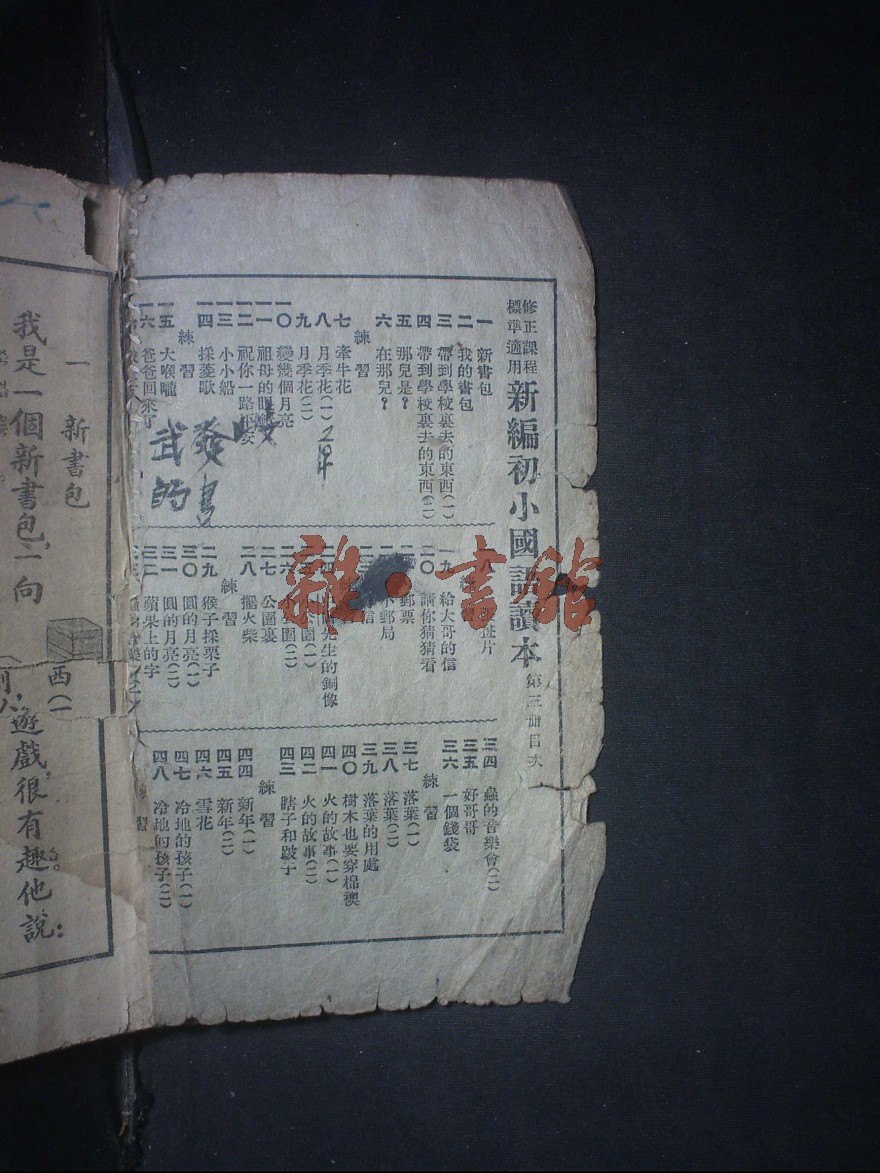 修正課程
標準適用
新編初小國語讀本 第三冊目次
一 新書包
二 我的書包
三 帶到學校裏去的東西(一)
四 帶到學校裏去的東西(二)
五 那兒是?
六 在那兒?
練習
七 牽牛花
八 月季花(一)
九 月季花(二)
一〇 變幾個月亮
一一 祖母的眼
一二 祝你一路平安
一三 小小船
一四 採菱歌
練習
一五 大喉嚨
一六 爸爸回來了
一八 片
練
一九 給大哥的信
二〇 請你猜猜看
郵票
小郵局
信
先生的銅像
公園(一)
二六 公園(二)
二七 公園裏
二八 擺火柴
練習
二九 猴子採栗子
三〇 圓的月亮(一)
三一 圓的月亮(二)
三二 蘋果上的字
三四 蟲的音樂會(二)
三五 好哥哥
三六 一個錢袋
練習
三七 落葉(一)
三八 落葉(二)
三九 落葉的用處
四〇 樹木也要穿棉襖
四一 火的故事(一)
四二 火的故事(二)
四三 瞎子和跛子
練習
四四 新年(一)
四五 新年(二)
四六 雪花
四七 冷地的孩子(一)
四八 冷地的孩子(二)
練習
雜·書館
一 新書包
我是一個新書包,一向
西(一
遊戲,很有趣。他說: